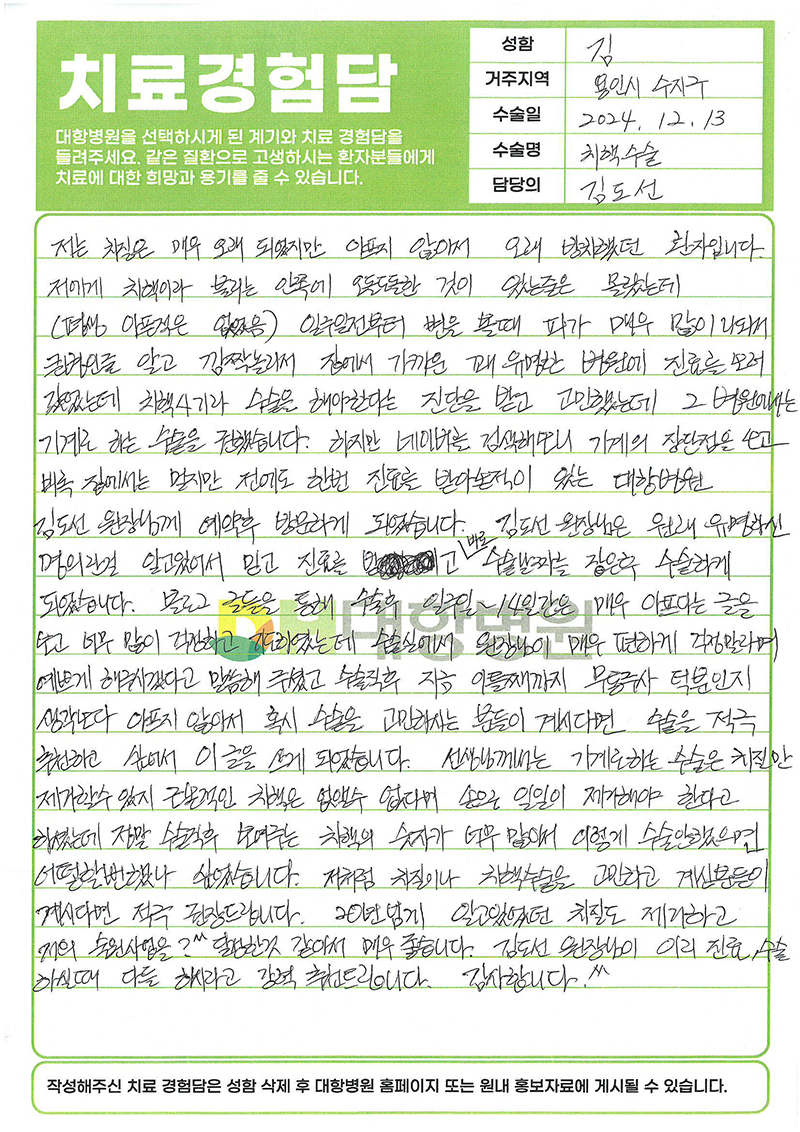 치료경험담
대항병원을 선택하시게 된 계기와 치료 경험담을
들려주세요. 같은 질환으로 고생하시는 환자분들에게
치료에 대한 희망과 용기를 줄 수 있습니다.
성함 김
거주지역 용인시 수지구
수술일 2024. 12. 13
수술명 치핵수술
담당의 김도선
저는 치질은 매우 오래 되었지만 아프지 않아서 오래 방치했던 환자입니다.
저에게 치핵이라 불리는 안쪽에 오돌도돌한 것이 있는줄은 몰랐는데
(평생 아픈적은 없었음) 일주일전부터 변을 볼때 피가 매우 많이 나와서
알고 깜짝놀라서 집에서 가까운 꽤 유명한 병원에 진료를 보러
갔었는데 치핵4기라 수술을 해야한다는 진단을 받고 고민했는데 그 병원에서는
기계로 하는 수술을 권했습니다. 하지만 네이버를 검색해보니 기계의 장단점을 보고
비록 집에서는 멀지만 전에도 한번 진료를 받아본적이 있는 대항병원
김도선 원장님께 예약후 방문하게 되었습니다. 김도선 원장님은 원래 유명하신
명의란걸 알고있어서 믿고 진료를 고 바로 수술날짜를 잡은후 수술하게
되었습니다. 블로그 글들을 통해 수술후 일주일~14일간은 매우 아프다는 글을
보고 너무 많이 걱정하고 수술실에서 원장님이 매우 편하게 걱정말라며
예쁘게 해주시겠다고 말씀해 주셨고 수술직후 지금 이틀째까지 무통주사 덕분인지
생각보다 아프지 않아서 혹시 수술을 고민하시는 분들이 계시다면 수술을 적극
추천하고 싶어서 이 글을 쓰게 되었습니다. 선생님께서는 기계로하는 수술은 치질만
제거할수 있지 근본적인 치핵은 없앨수 없다며 손으로 일일이 제거해야 한다고
하셨는데 정말 수술직후 보여주는 치핵의 숫자가 너무 많아서 이렇게 수술안했으면
어떨할번했나 싶었습니다. 저처럼 치질이나 치핵수술을 고민하고 계신분들이
계시다면 적극 권장드립니다. 20년넘게 앓고있었던 치질도 제거하고
저의 숙원사업을?^^ 달성한것 같아서 매우 좋습니다. 김도선 원장님이 이리 진료,수술
하실때 다들 하시라고 강력 추천드립니다. 감사합니다.^^
대항병원
작성해주신 치료 경험담은 성함 삭제 후 대항병원 홈페이지 또는 원내 홍보자료에 게시될 수 있습니다.